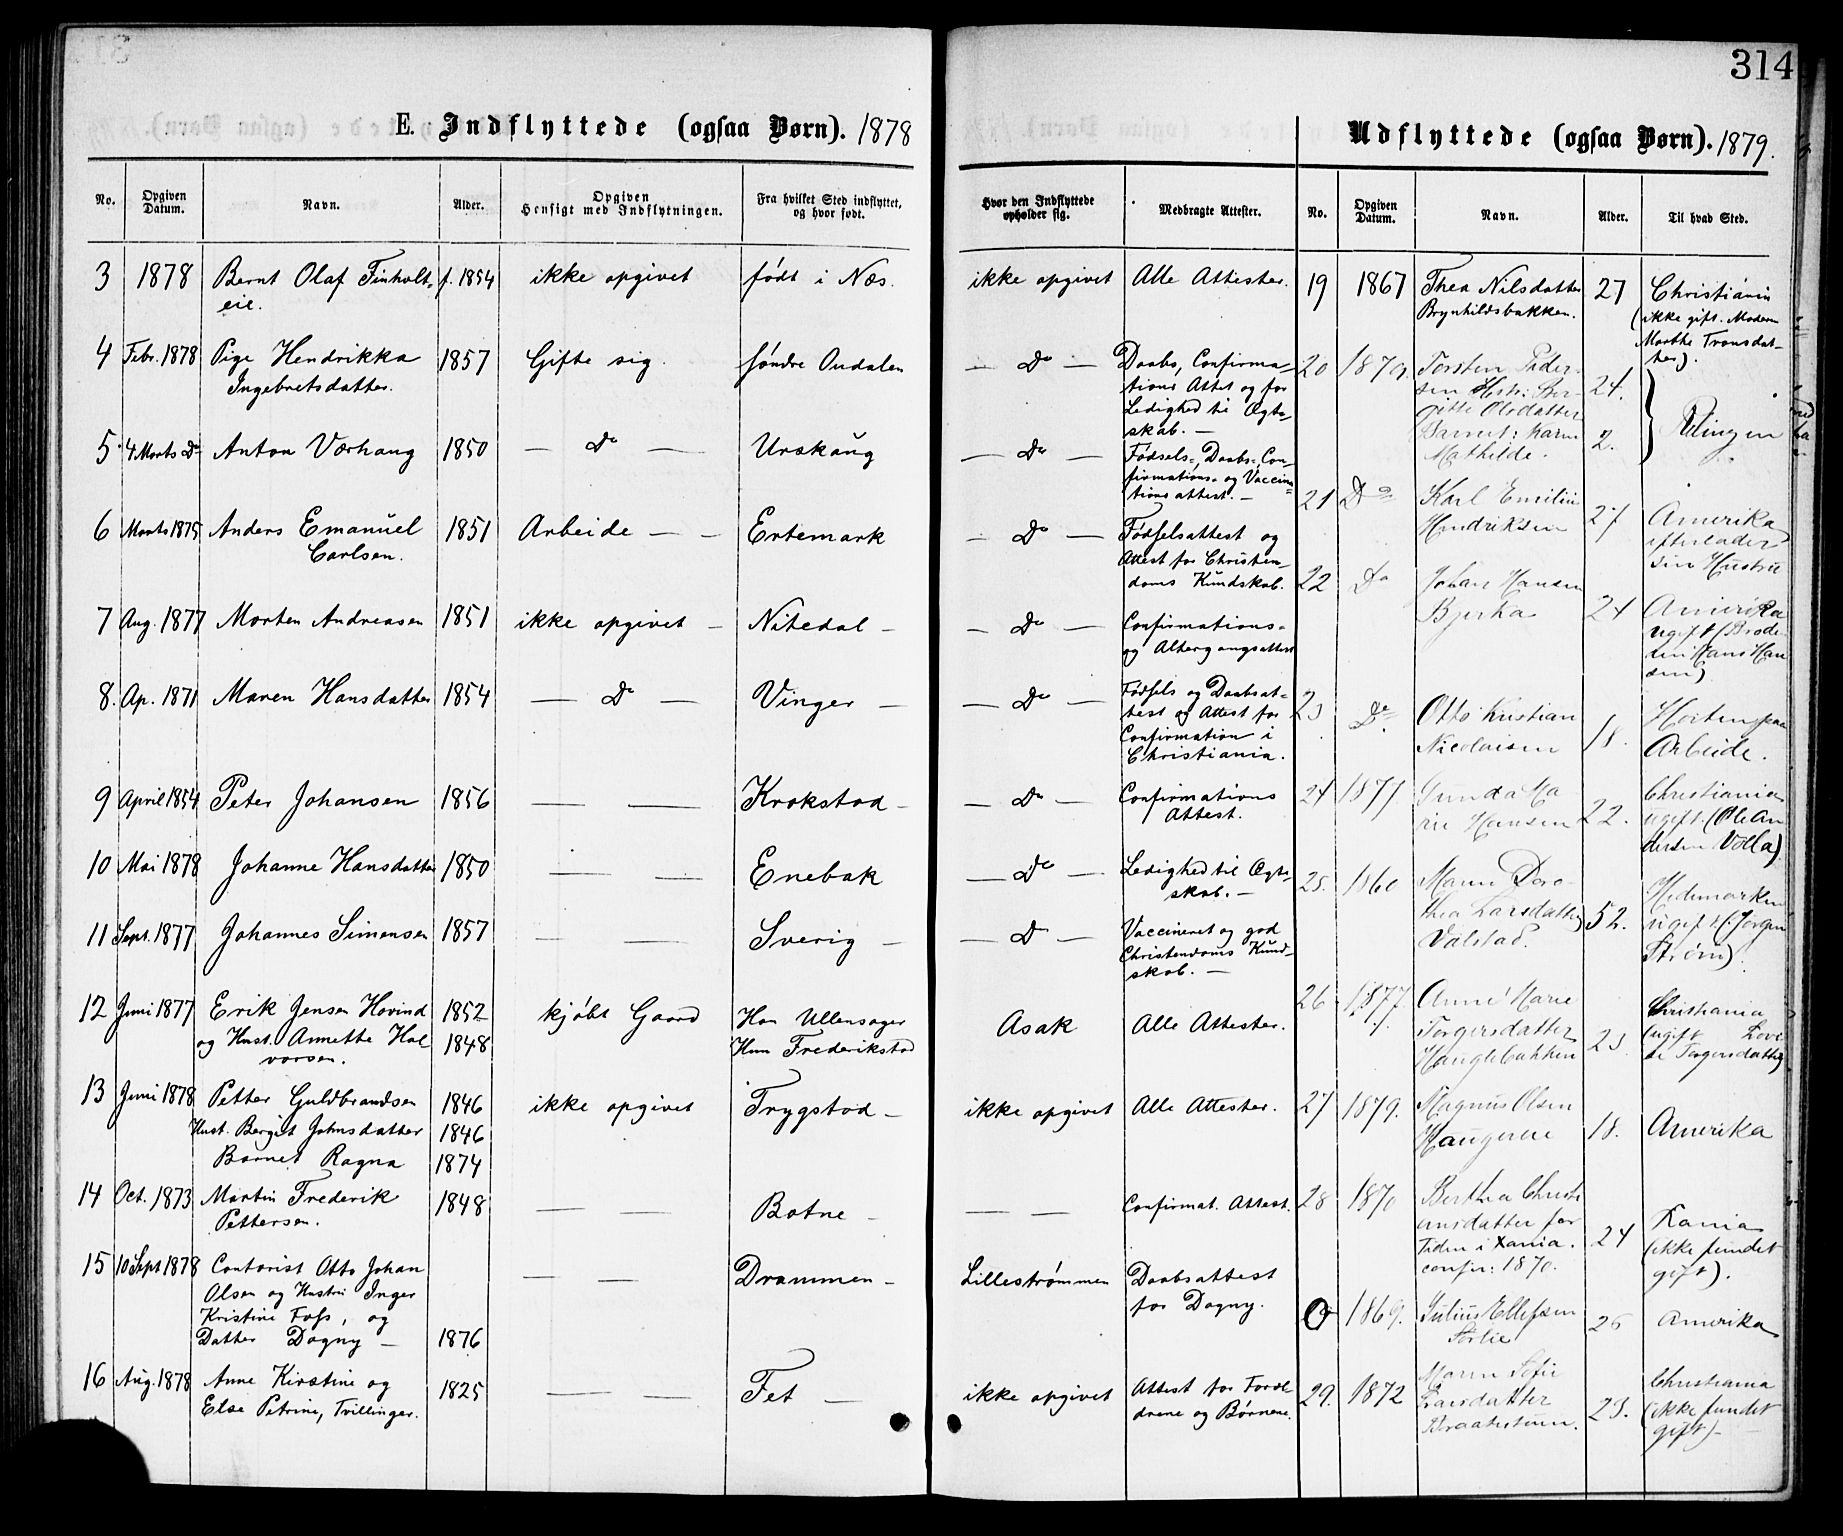 314
E. Indflyttede (ogsaa Børn). 1878
No.
Opgiven Datum.
Navn.
Alder.
Opgiven Hensigt med Indflytningen.
Fra hvilket Sted indflyttet, og hvor født.
Hvor den Indflyttede opholder sig.
Medbragte Attester.
3 1878 Bernt Olaf Finholt= f. 1854 ikke opgivet født i Næs. ikke opgivet Alle Attester.
eie.
4 Febr. 1878 Pige Hendrikka 1857 Gifte sig. søndre Oudalen — Do — Daabs, Confirma=
Ingebretsdatter. tions Attest og for
Ledighed til Ægte=
skab. —
5 4 Marts Do Anton Værhaug 1850 — Do — Urskaug — Do — Fødsels=, Daabs=, Con=
firmations= og Vaccina=
tionsattest. —
6 Marts 1875 Anders Emanuel 1851 Arbeide — — Ertemark — Do — Fødselsattest og
Carlsen. Attest for Christen=
doms Kundskab.
7 Aug. 1877 Morten Andreasen 1851 ikke opgivet — Nitedal — — Do — Confirmations=
og Altergangsattest
8. Ap. 1871 Maren Hansdatter 1854 — Do — Vinger — — Do — Fødsels og Daabsat=
test og Attest for
Confirmation i
Christiania.
9 April 1854 Peter Johansen 1856 — — Krokstad — — Do — Confirmations
Attest.
10 Mai 1878 Johanne Hansdatter 1850 — — Enebak — Do — Ledighed til Ægte=
skab. —
11 Sept. 1877 Johannes Simensen 1857 — — Sverig — — Do — Vaccineret og god
Christendoms Kund=
skab. —
12 Juni 1877 Erik Jensen Hovind 1852 kjøbt Gaard Han Ullensager Asak Alle Attester.
og Hust. Annette Hal 1848 Hun Frederikstad
vorsen.
13 Juni 1878 Petter Guldbrandsen 1846 ikke opgivet Trygstad — ikke opgivet Alle Attester.
Hust. Bergit Johnsdatter 1846
Barnet Ragna 1874
14 Oct. 1873 Martin Frederik 1848 — — Botne — — — Confirmat. Attest.
Pettersen.
15 10 Sept 1878 Contorist Otto Johan — — Drammen — Lillestrømmen Daabsattest
Olsen og Hustru Inger for Dagny.
Kristine Foss, og
Datter Dagny — 1876
16 Aug. 1878 Anne Kirstine og 1825 — — Fet — ikke opgivet Attest for Foræl
Else Petrine, Tvillinger. drene og Børnene.
Udflyttede (ogsaa Børn). 1879.
No.
Opgiven Datum.
Navn.
Alder.
Til hvad Sted.
19 1867 Thea Nilsdatter 27 Christiania
Brynhildsbakken. (ikke gift. Moderen
Marthe Tronsdat=
ter).
20 1879. Torsten Peder= 24.
sen Hstr: Ber=
gitte Olsdatter
Barnet: Karen 2. Rælingen
Mathilde.
21 Do Karl Emilius 27 Amerika
Hendriksen efterlader
sin Hustru
22 Do Johan Hansen 24 Amerika
Bjerka ugift (Brode=
ren Hans Han
sen)
23 Do Otto Kristian 18. Horten paa
Nicolaisen Arbeide.
24 1877 Gunda Ma= 22. Christiania
rie Hansen ugift. (Ole An
dersen Volla)
25. 1860 Maren Doro= 52. Hedemarken
thea Larsdatter ugift (Jørgen
Valstad. Strøm)
26 1877. Anne Marie 23 Christiania
Torgersdatter (ugift Lovi
Hauglebakken se Torgersdatter)
27 1879. Magnus Olsen 18. Amerika
Haugereie
28 1870 Berthea Christi 24 Xania
ansdatter for (ikke fundet
Tiden i Xania. gift).
confir: 1870.
1869. Julius Ellefsen 26 Amerika
Sørlie
29. 1872 Maren Sofie 23. Christiania
Larsdatter (ikke fundet
gift)